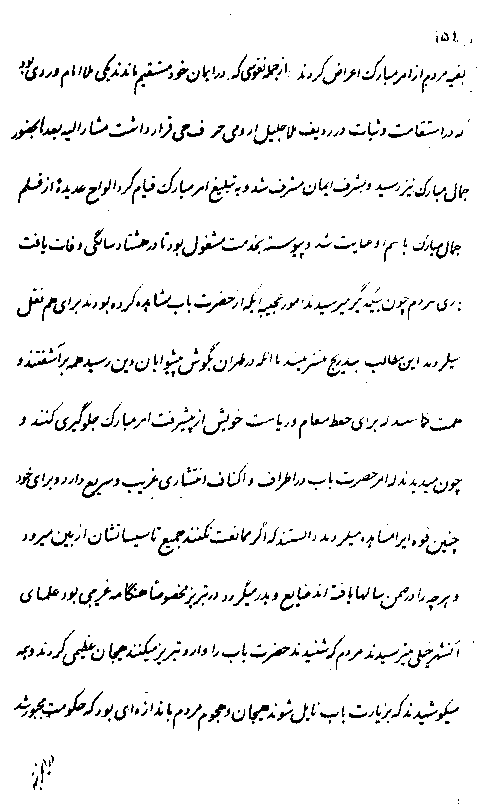 ۱۵۴
بقیه مردم از امر مبارک اعراض کردند از جمله نفوسی که در ایمان خود مستقیم ماندند یکی ملا امام وردی بود
که در استقامت و ثبات در ردیف ملا جلیل ارومی حرف حی قرار داشت مشار الیه بعدا بحضور
جمال مبارک نیز رسید و بشرف ایمان مشرف شد و به تبلیغ امر مبارک قیام کرد الواح عدیده از قلم
جمال مبارک باسم او عنایت شد و پیوسته بخدمت مشغول بود تا در هشتاد سالگی وفات یافت
باری مردم چون بیکدیگر میرسیدند امور عجیبه ایکه از حضرت باب مشاهده کرده بودند برای هم نقل
میکردند این مطالب بتدریج منتشر میشد تا آنکه در طهران بگوش پیشوایان دین رسید همه برآشفتند و
همت گماشتند که برای حفظ مقام و ریاست خویش از پیشرفت امر مبارک جلوگیری کنند و
چون میدیدند که امر حضرت باب در اطراف و اکناف انتشاری غریب و سریع دارد و برای خود
چنین قوه ایرا مشاهده میکردند دانستند که اگر ممانعت نکنند جمیع تاسیساتشان از بین میرود
و هرچه را در ضمن سالها بافته اند ضایع و بدر میگردد در تبریز مخصوصا هنگامه غریبی بود علمای
آنشهر خیلی میترسیدند مردم که شنیدند حضرت باب را وارد تبریز میکنند هیجان عظیمی کردند و همه
میکوشیدند که بزیارت باب نایل شوند هیجان و هجوم مردم باندازه ای بود که حکومت مجبور شد